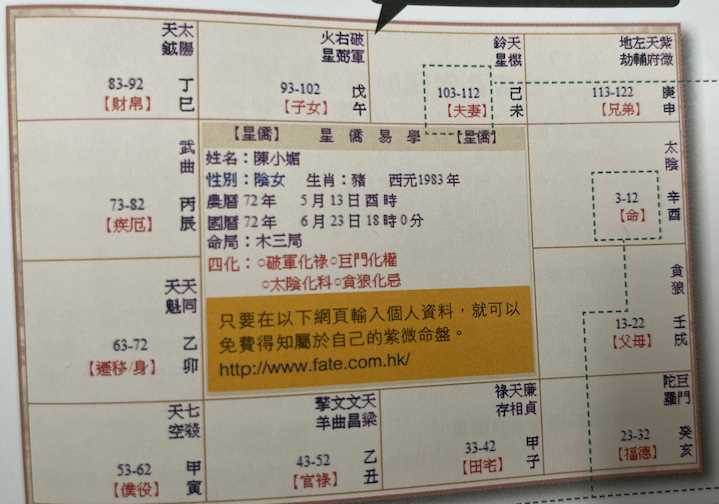 太陽 天鉞
83-92 丁巳
【財帛】
破軍 右弼 火星
93-102 戊午
【子女】
天機 鈴星
103-112 己未
【夫妻】
紫微 天府 左輔 地劫
113-122 庚申
【兄弟】
武曲
73-82 丙辰
【疾厄】
【星僑】 星僑易學 【星僑】
姓名：陳小媚
性別：陰女 生肖：豬 西元1983年
農曆72年 5月13日酉時
國曆72年 6月23日18時0分
命局：木三局
四化：○破軍化祿○巨門化權
○太陰化科○貪狼化忌
只要在以下網頁輸入個人資料，就可以
免費得知屬於自己的紫微命盤。
http://www.fate.com.hk/
太陰
3-12 辛酉
【命】
天同 天魁
63-72 乙卯
【遷移/身】
貪狼
13-22 壬戌
【父母】
七殺 天空
53-62 甲寅
【僕役】
天梁 文昌 文曲 擎羊
43-52 乙丑
【官祿】
廉貞 天相 祿存
33-42 甲子
【田宅】
巨門 陀羅
23-32 癸亥
【福德】